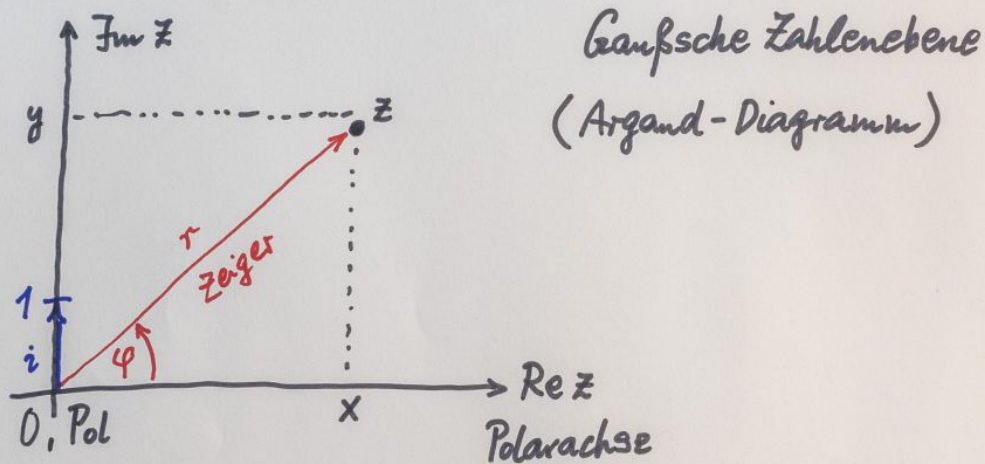 Im z
Gaußsche Zahlenebene
(Argand-Diagramm)
y
z
r
Zeiger
1
i
φ
Re z
0, Pol
x
Polarachse